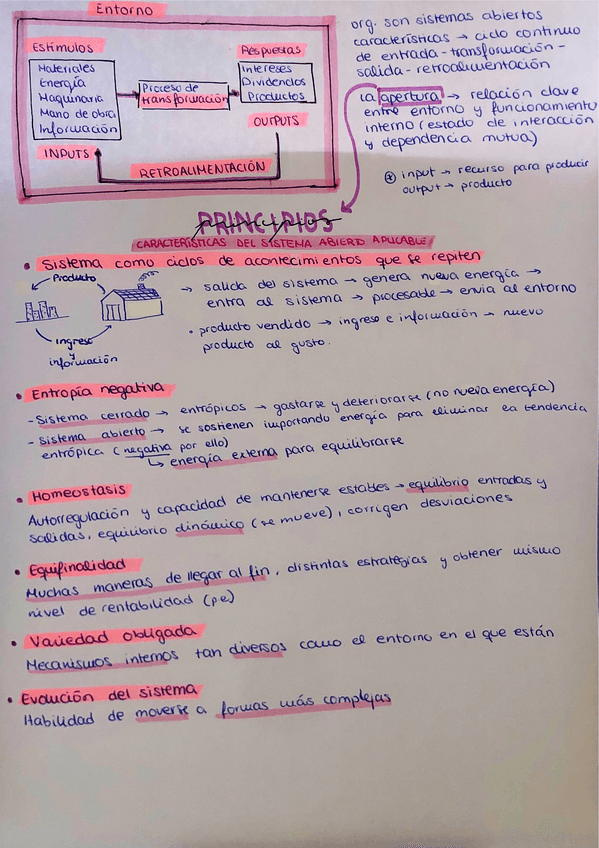 Entorno
Estímulos
Materiales
Energía
Maquinaria
Mano de obra
Información
INPUTS
Proceso de
transformación
Respuestas
Intereses
Dividendos
Productos
OUTPUTS
RETROALIMENTACIÓN
org. son sistemas abiertos
características → ciclo continuo
de entrada - transformación -
salida - retroalimentación
La apertura → relación clave
entre entorno y funcionamiento
interno (estado de interacción
y dependencia mutua)
* input → recurso para producir
output → producto
PRINCIPIOS
CARACTERÍSTICAS DEL SISTEMA ABIERTO APLICABLE
• Sistema como ciclos de acontecimientos que se repiten
Producto
Ingreso
y
información
→ salida del sistema → genera nueva energía →
entra al sistema → procesable → envia al entorno
• producto vendido → ingreso e información → nuevo
producto al gusto.
• Entropía negativa
- Sistema cerrado → entrópicos → gastarse y deteriorarse (no nueva energía)
- Sistema abierto → se sostienen importando energía para eliminar la tendencia
entrópica (negativa por ello)
↳ energía externa para equilibrarse
• Homeostasis
Autorregulación y capacidad de mantenerse estables → equilibrio entradas y
salidas, equilibrio dinámico (se mueve), corrigen desviaciones
• Equifinalidad
Muchas maneras de llegar al fin, distintas estrategias y obtener mismo
nivel de rentabilidad (pe)
• Variedad obligada
Mecanismos internos tan diversos como el entorno en el que están
• Evolución del sistema
Habilidad de moverse a formas más complejas